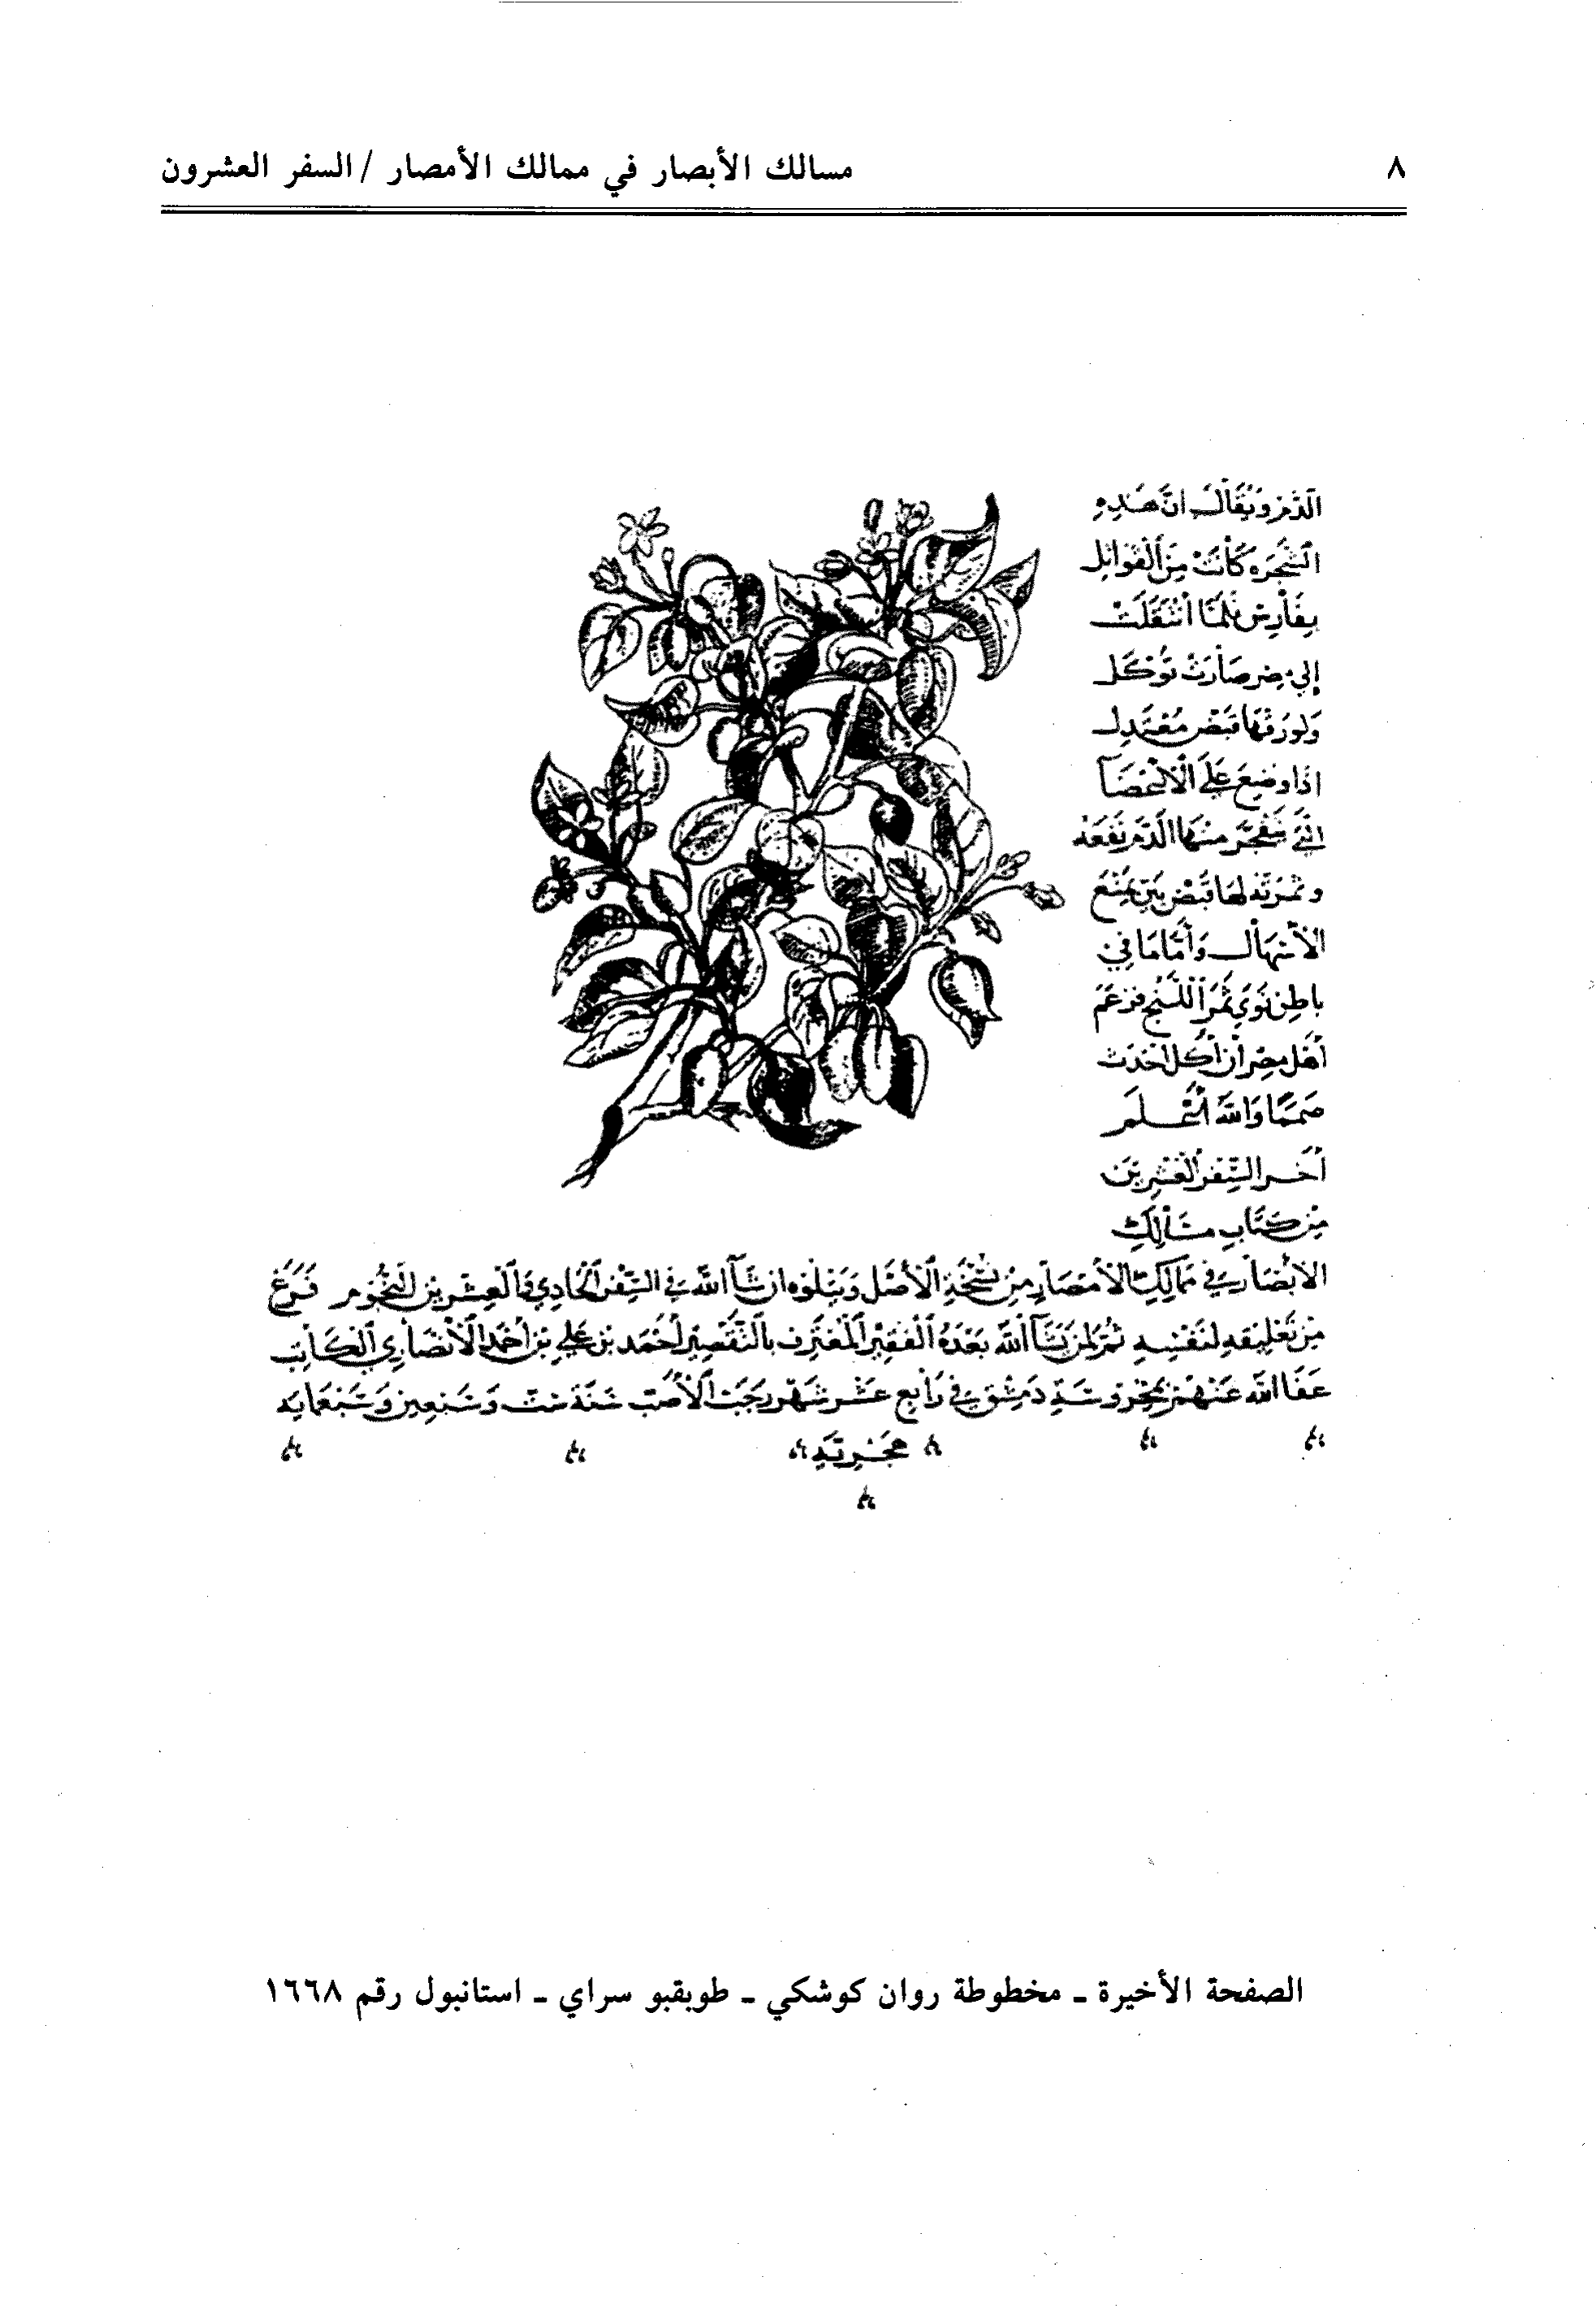 ٨
مسالك الأبصار في ممالك الأمصار / السفر العشرون
الدم ويقال ان هذه
الشجره كانت من القواتل
بفارس فلما انتقلت
إلي مصر صارت تؤكل
ولورقها قبض معتدل
اذا وضع علي الاعضآ
التي ينفجر منها الدم نفعه
وثمرته لها قبض بين يمنع
الأسهال وأما ما في
باطن نوي ثمر اللبنج فزعم
أهل مصر أن أكل احدث
صمما والله أعلم
أخر السفر العشرين
من كتاب مسالك
الابصار في ممالك الأمصار من نسخة الأصل ويتلوه ان شآ الله في السفر الحادي والعشرين النجوم فرغ
من تعليقه لنفسه ثم لمن يشآ الله بعده الفقير المعترف بالتقصير أحمد بن علي بن أحمد الأنصاري الكاتب
عفا الله عنهم بمحروسة دمشق في رابع عشر شهر رجب الأصب سنة ست وسبعين وسبعمايه
هجرية
الصفحة الأخيرة - مخطوطة روان كوشكي - طوبقبو سراي - استانبول رقم ١٦٦٨